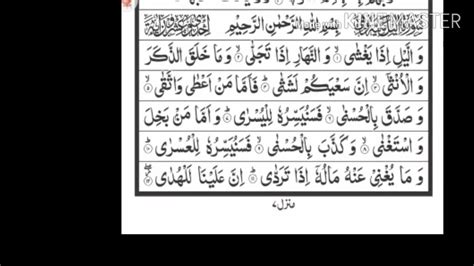 KINEMASTER
بِسْمِ اللّٰهِ الرَّحْمٰنِ الرَّحِيْمِ
وَ الَّيْلِ اِذَا يَغْشٰى ۙ﴿۱﴾ وَ النَّهَارِ اِذَا تَجَلّٰى ۙ﴿۲﴾ وَ مَا خَلَقَ الذَّكَرَ
وَ الْاُنْثٰۤى ۙ﴿۳﴾ اِنَّ سَعْيَكُمْ لَشَتّٰى ؕ﴿۴﴾ فَاَمَّا مَنْ اَعْطٰى وَ اتَّقٰى ۙ﴿۵﴾
وَ صَدَّقَ بِالْحُسْنٰى ۙ﴿۶﴾ فَسَنُيَسِّرُهٗ لِلْيُسْرٰى ؕ﴿۷﴾ وَ اَمَّا مَنْۢ بَخِلَ
وَ اسْتَغْنٰى ۙ﴿۸﴾ وَ كَذَّبَ بِالْحُسْنٰى ۙ﴿۹﴾ فَسَنُيَسِّرُهٗ لِلْعُسْرٰى ؕ﴿۱۰﴾
وَ مَا يُغْنِيْ عَنْهُ مَالُهٗۤ اِذَا تَرَدّٰى ؕ﴿۱۱﴾ اِنَّ عَلَيْنَا لَلْهُدٰى ۖ﴿۱۲﴾
منزل ۷